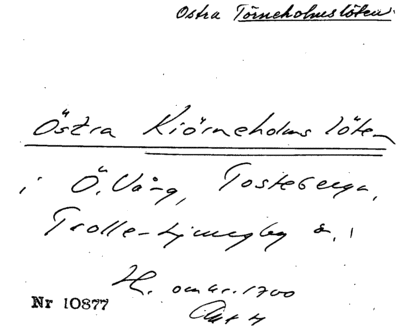 Östra Törneholmslöten
Östra Kiörneholms löten
i Ö. Vång, Tosteberga,
Trolle-Ljungby
H. omkr. 1700
Nr 10877